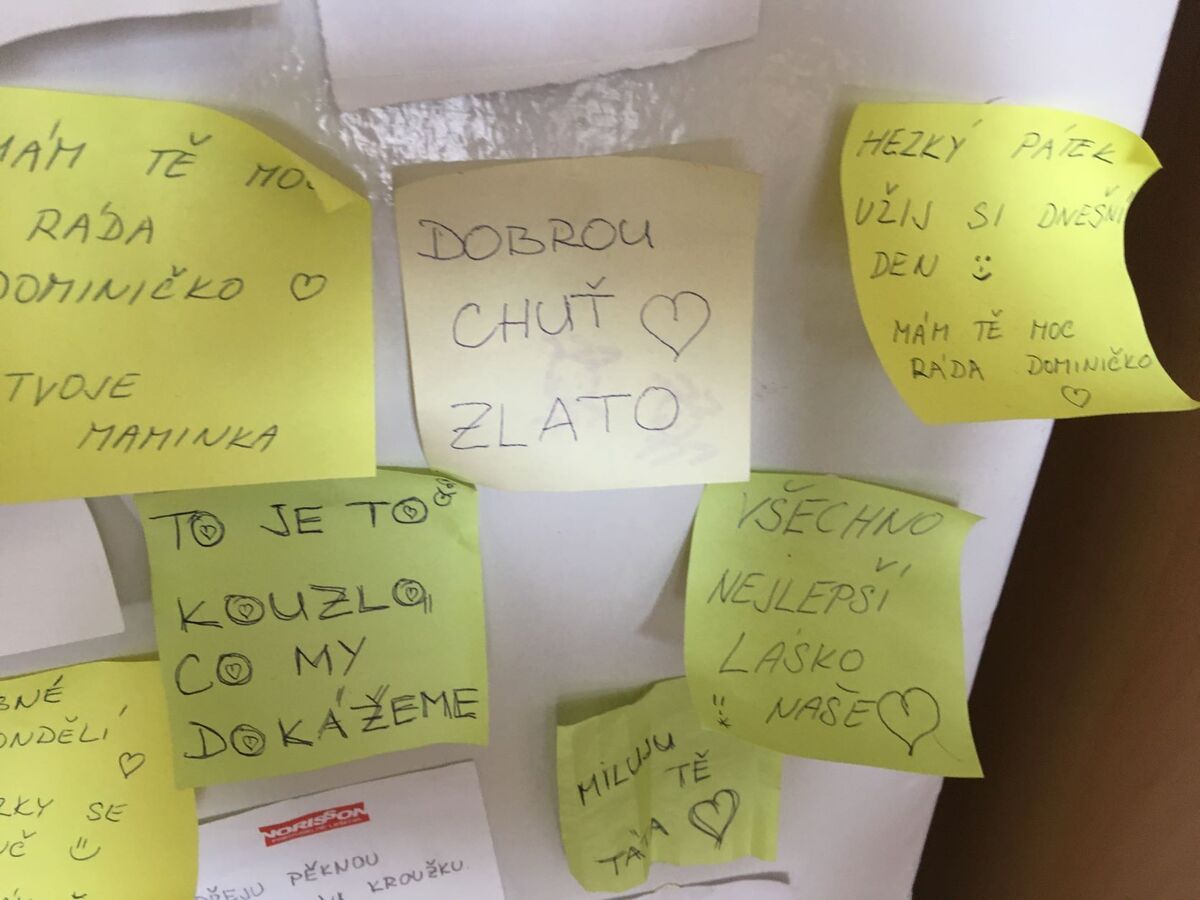 MÁM TĚ
RÁDA
DOMINIČKO ♡
TVOJE
MAMINKA
DOBROU
CHUŤ ♡
ZLATO
HEZKÝ PÁTEK
UŽIJ SI DNEŠNÍ
DEN
MÁM TĚ MOC
RÁDA DOMINIČKO
♡
TO JE TO
KOUZLO,
CO MY
DOKÁŽEME
VŠECHNO
NEJLEPŠÍ
LÁSKO
NAŠE ♡
MILUJU
TĚ
TÁTA ♡
♡
SE
NORISSON
PĚKNOU
KROUŽKU.